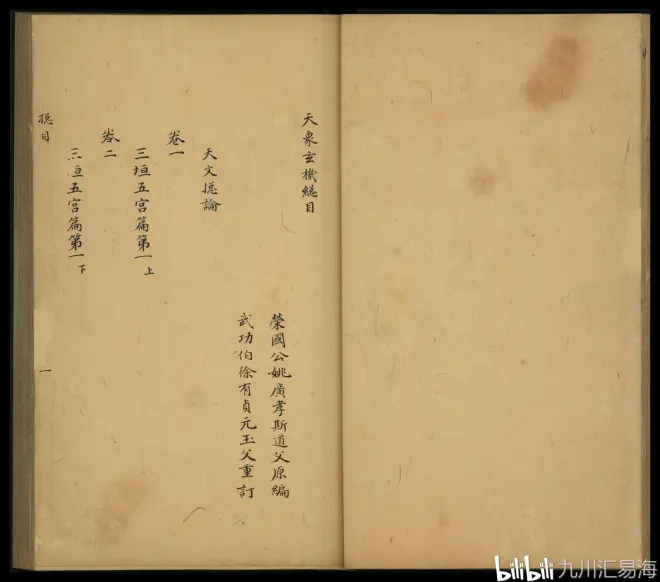 天象玄機緫目
榮國公姚廣孝斯道父原編
武功伯徐有貞元玉父重訂
天文緫論
卷一
三垣五宫篇第一上
卷二
三垣五宫篇第一下
緫目
一
bilibili 九川汇易海